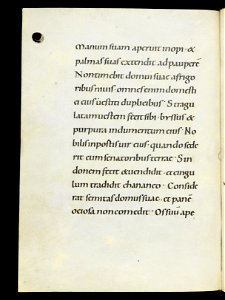 manum suam aperuit inopi · &
palmas suas extendit ad pauperē
Non timebit domui suae a frigo
ribus niuis · omnes enim domesti
ci eius uestiti duplicibus · Stragu
latam uestem fecit sibi · byssus &
purpura indumentum eius · No
bilis in portis uir eius · quando sede
rit cum senatoribus terrae · Sin
donem fecit & uendidit · et cingu
lum tradidit chananeo · Conside
rat semitas domus suae · et panē
ociosa non comedit · Os suū ape